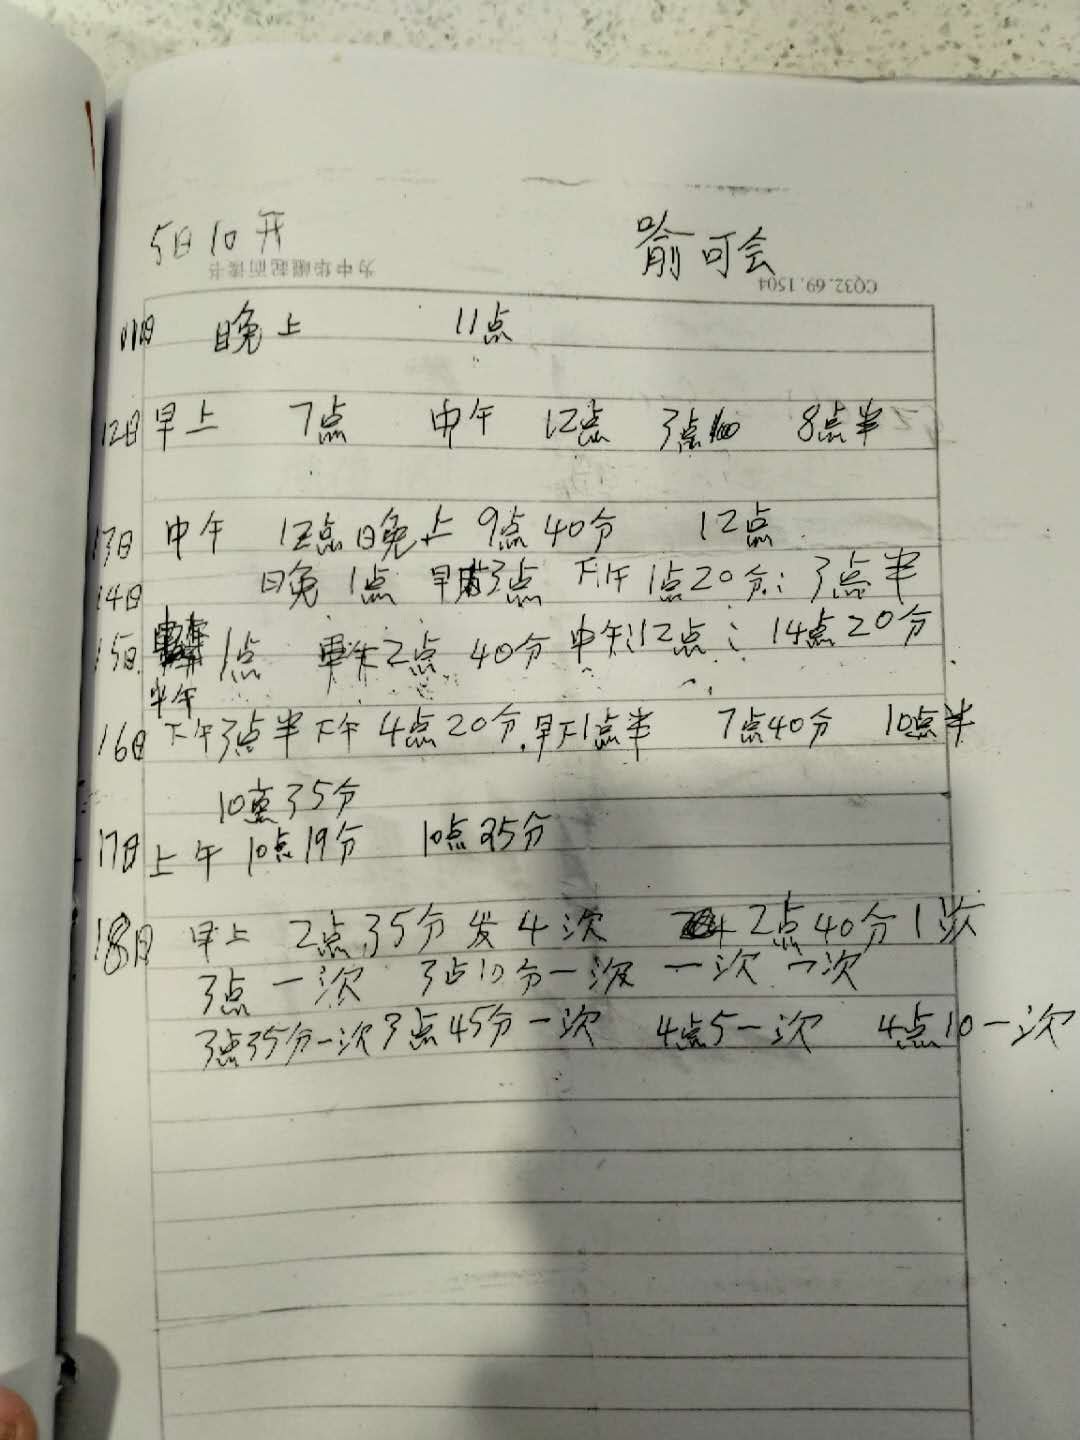 5日10开
喻可会
为中华崛起而读书
CQ32.69.1504
11日 晚上 11点
12日 早上 7点 中午 12点 3点 8点半
13日 中午 12点 晚上 9点40分 12点
14日 晚 1点 早 3点 下午 1点20分; 3点半
15日 1点 2点 40分 中午12点; 14点20分
半午
16日 下午3点半 下午 4点20分. 早下1点半 7点40分 10点半
10点35分
17日 上午 10点19分 10点35分
18日 早上 2点35分发4次 2点40分1次
3点一次 3点10分一次 一次 一次
3点35分一次 3点45分一次 4点5一次 4点10一次